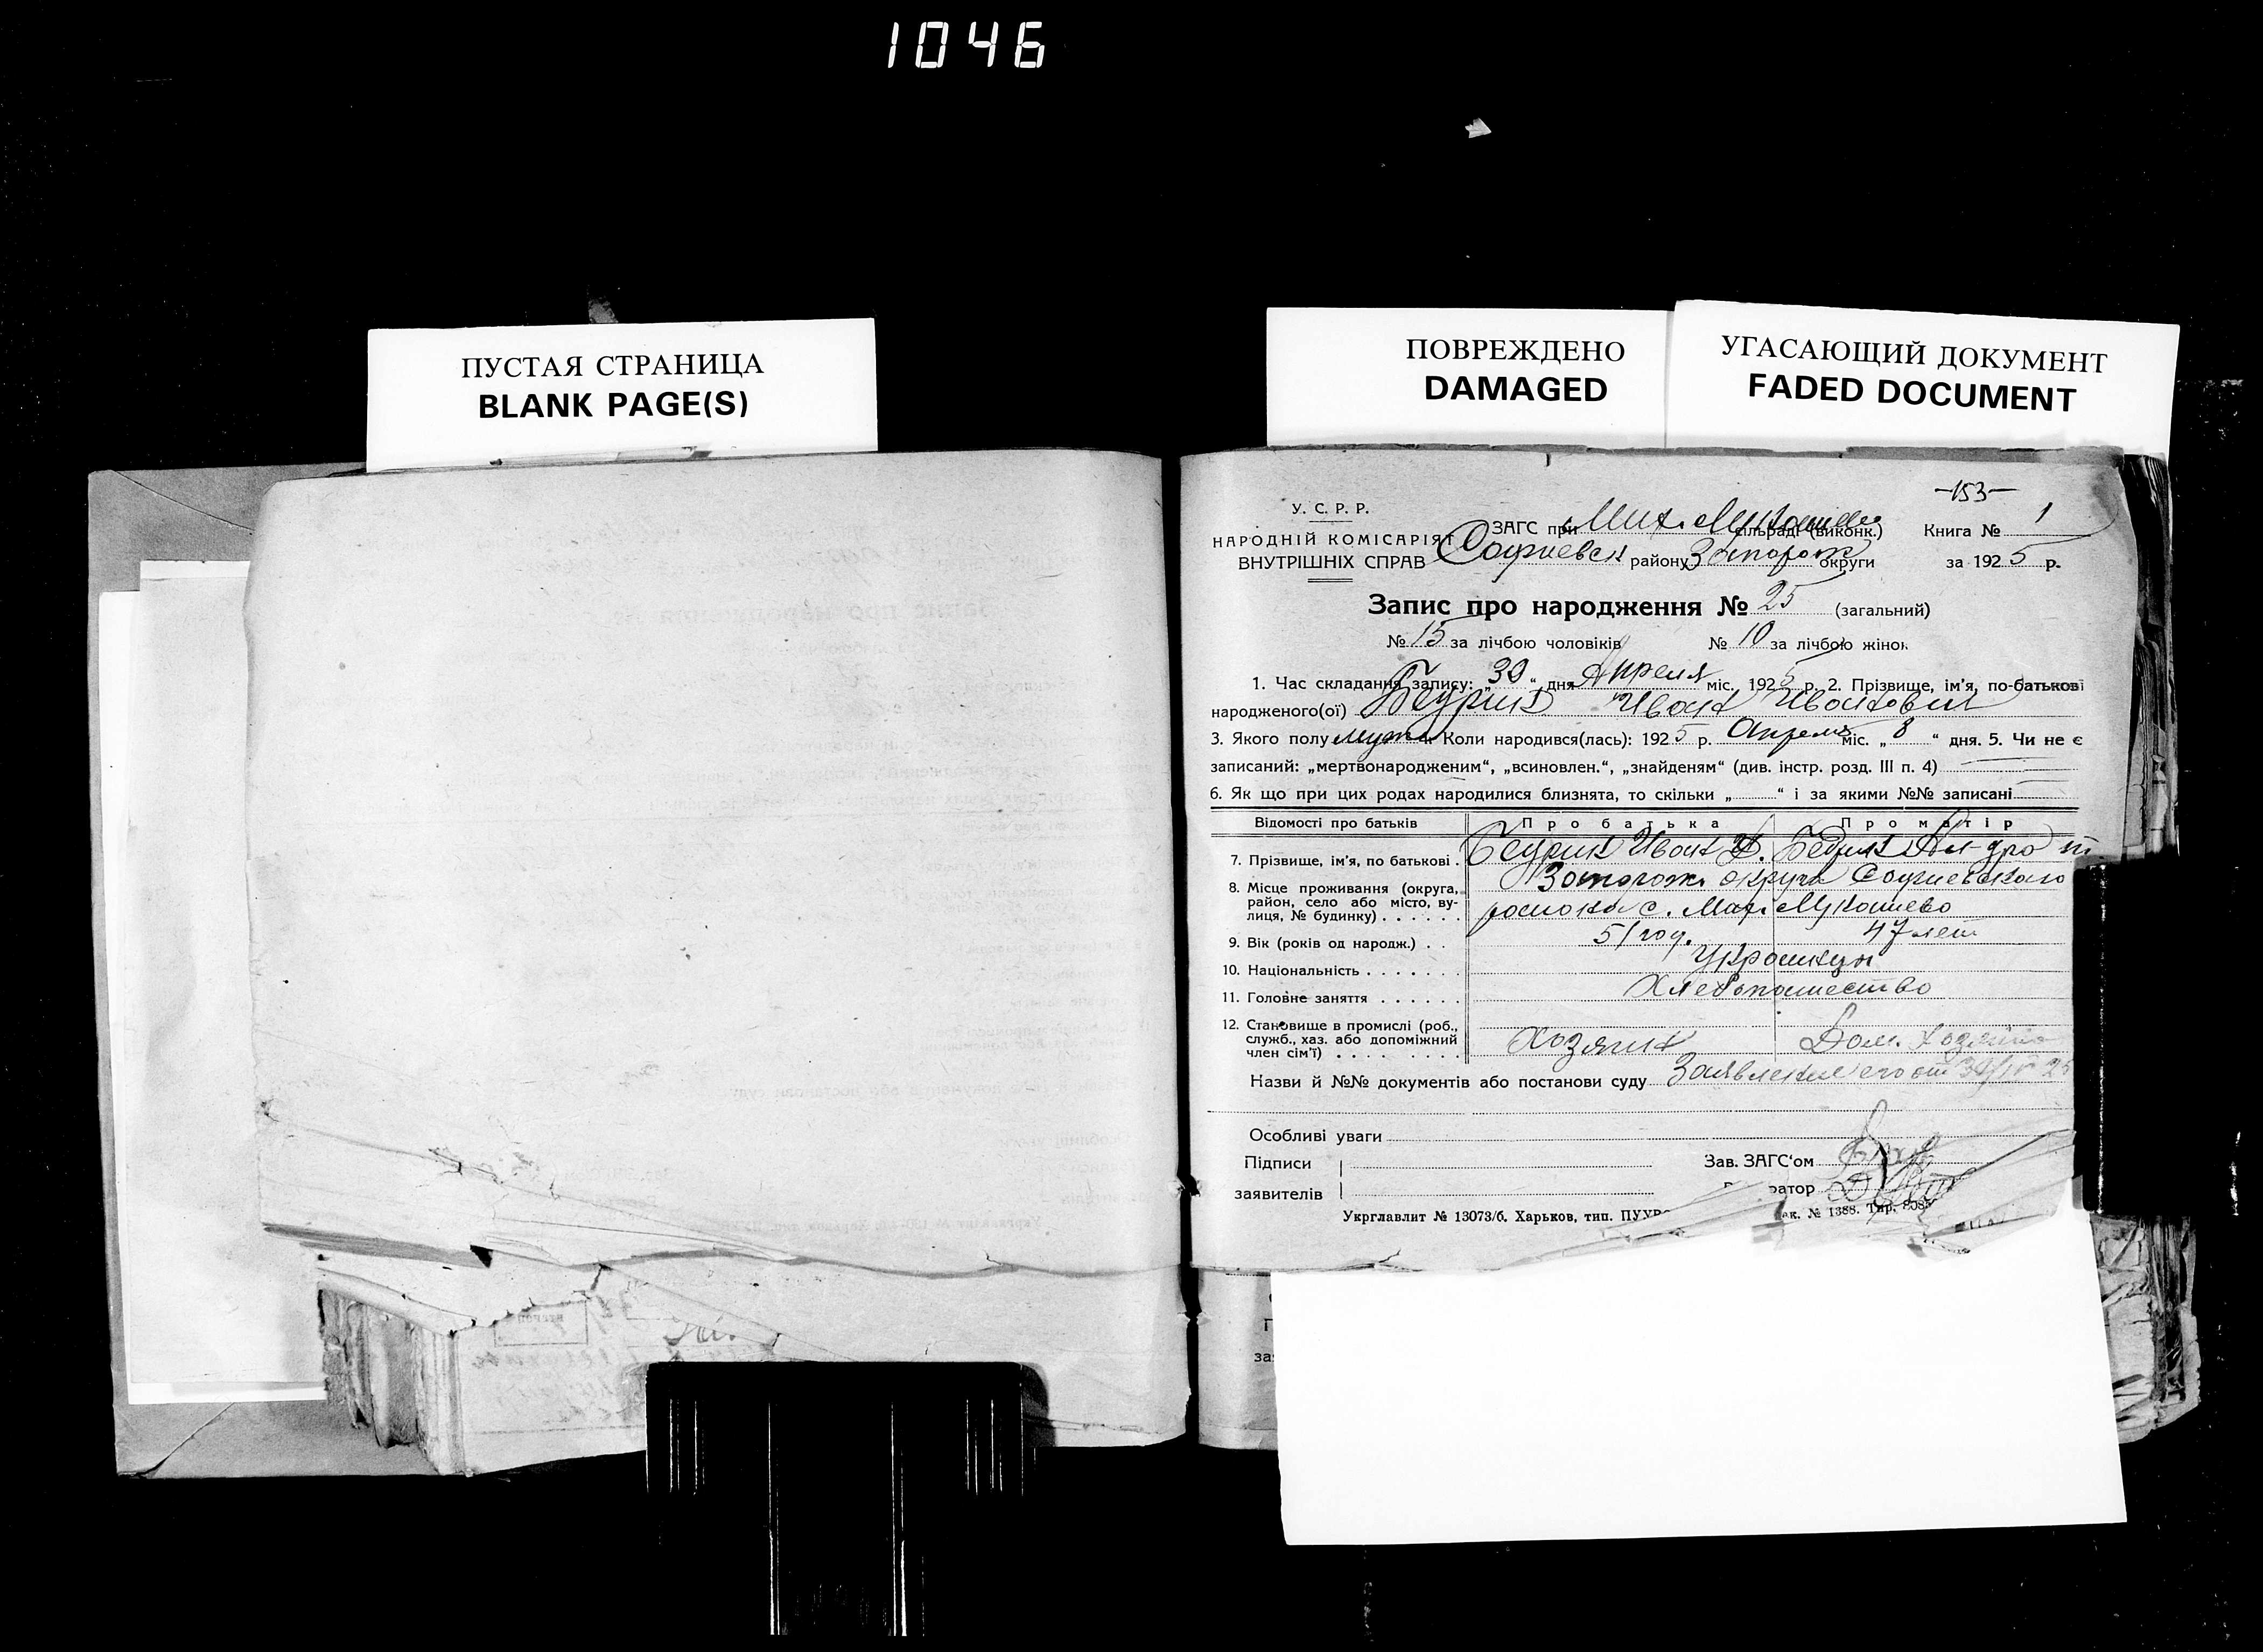 1046
ПУСТАЯ СТРАНИЦА
BLANK PAGE(S)
ПОВРЕЖДЕНО
DAMAGED
УГАСАЮЩИЙ ДОКУМЕНТ
FADED DOCUMENT
-153-
У. С. Р. Р.
НАРОДНІЙ КОМІСАРІЯТ
ВНУТРІШНІХ СПРАВ
ЗАГС при сільраді (виконк.)
района Запорож округи
Книга № 1
за 1925 р.
Запис про народження № 25 (загальний)
№ 15 за лічбою чоловіків № 10 за лічбою жінок
1. Час складання запису: „30“ дня Апреля міс. 1925 р. 2. Прізвище, ім'я, по-батькові
народженого(ої) Иван Иванович
3. Якого полу муж. 4. Коли народився(лась): 1925 р. Апреля міс. „8“ дня. 5. Чи не є
записаний: „мертвонародженим“, „всиновлен.“, „знайденям“ (див. інстр. розд. III п. 4)
6. Як що при цих родах народилися близнята, то скільки „ “ і за якими №№ записані
Відомості про батьків Про батька Про матір
7. Прізвище, ім'я, по батькові . Иван
8. Місце проживання (округа, район, село або місто, вулиця, № будинку) . . . . . . Запорож. округа
с.
9. Вік (років од народж.) . . 51 год. 47 лет
10. Національність . . . . . . . Украинцы
11. Головне заняття . . . . . . Хлебопашество
12. Становище в промислі (роб.,
служб., хаз. або допоміжний
член сім'ї) . . . . Хозяин Дом. хозяйка
Назви й №№ документів або постанови суду Заявление его от 30/IV 25
Особливі уваги
Підписи
заявителів
Зав. ЗАГС'ом
Укрглавлит № 13073/б. Харьков, тип. № 1388. Тир.